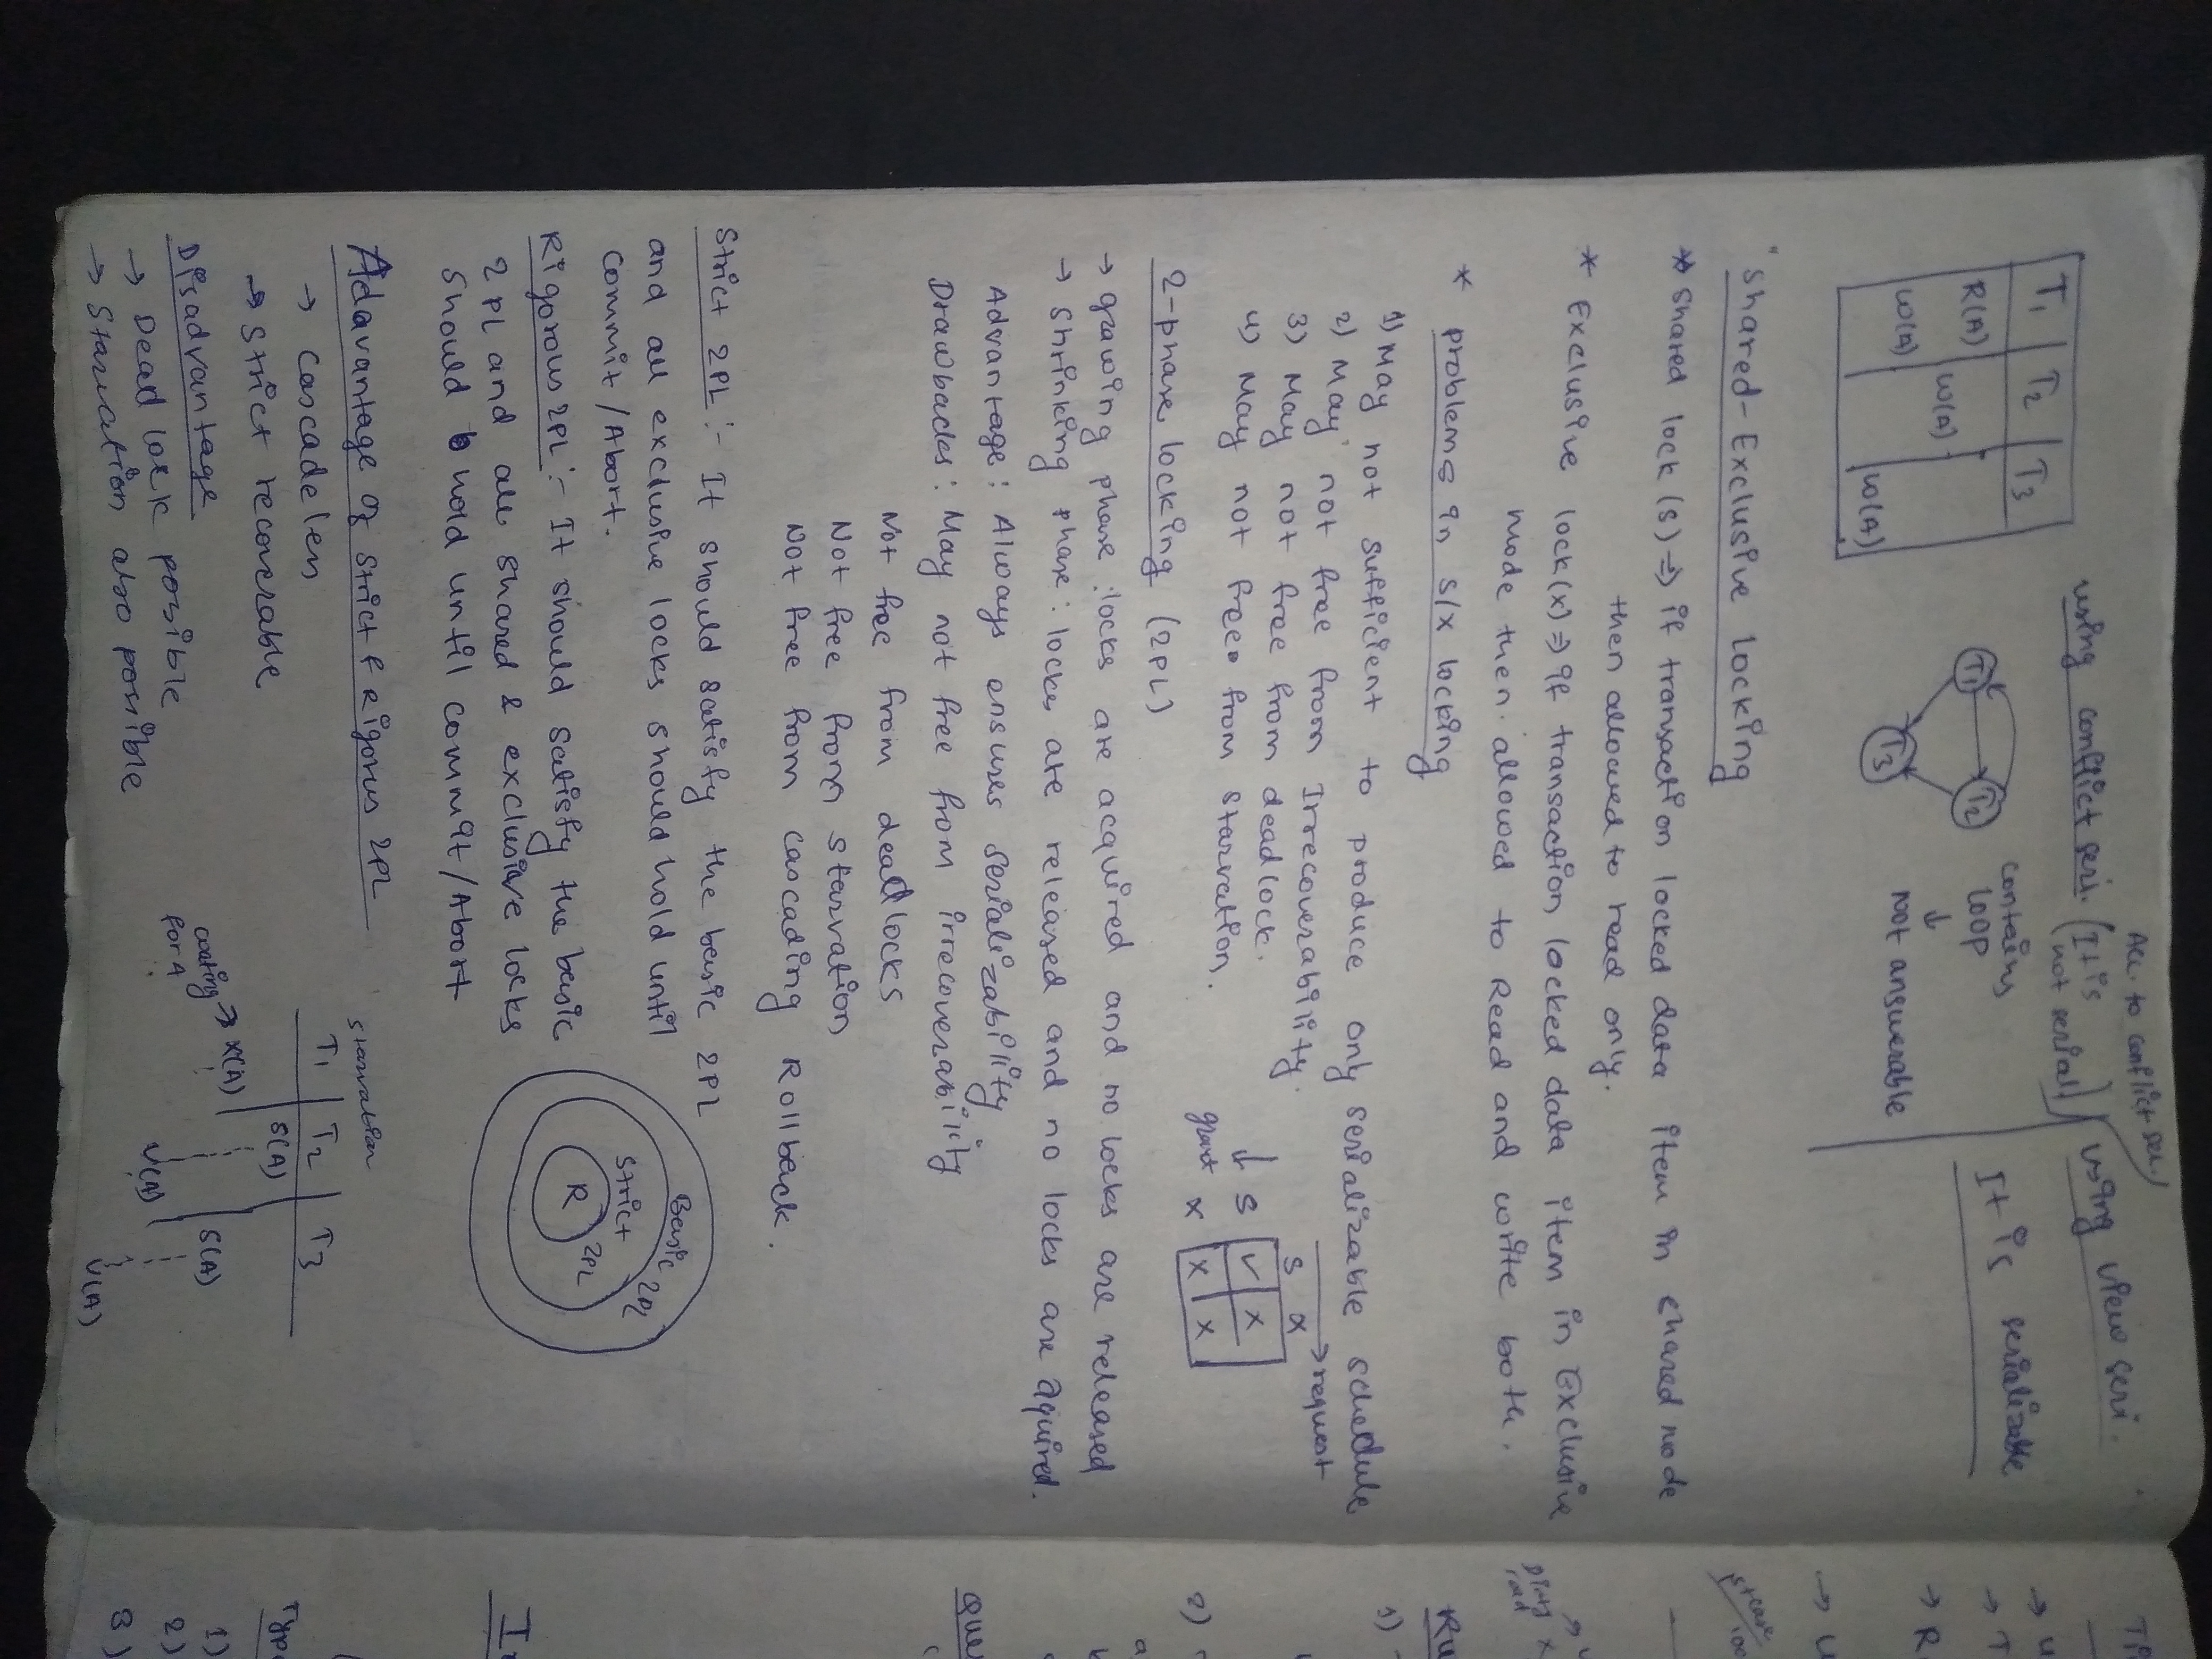 Acc. to conflict seri.
using conflict seri. (It is not serial) using view seri.
T1 T2 T3
R(A)
W(A)
W(A)
W(A)
T1 T2 T3
contains
loop
↓
not answerable
It is serializable
"Shared-Exclusive locking
* Shared lock (S) ⇒ if transaction locked data item in shared mode
then allowed to read only.
* Exclusive lock(X) ⇒ if transaction locked data item in Exclusive
mode then allowed to Read and write both.
* problems in S/X locking
1) May not sufficient to produce only serializable schedule
2) May not free from Irrecoverability.
3) May not free from deadlock.
4) May not free from starvation.
S X → request
↓ S ✓ X
grant X X X
2-phase locking (2PL)
→ growing phase : locks are acquired and no locks are released
→ shrinking phase : locks are released and no locks are aquired.
Advantage : Always ensures serializability
Drawbacks : May not free from irrecoverability
Not free from deadlocks
Not free from starvation
Not free from cascading Rollback.
Strict 2PL :- It should satisfy the basic 2PL
and all exclusive locks should hold until
commit/Abort.
Rigorous 2PL :- It should satisfy the basic
2PL and all shared & exclusive locks
should hold until commit/Abort
Basic 2PL
Strict 2PL
R
Adavantage of strict & Rigorus 2PL
→ Cascadeless
→ strict recoverable
Disadvantage
→ Dead lock possible
→ Starvation also possible
starvation
T1 T2 T3
S(A)
waiting → X(A)
for A
S(A)
U(A)
U(A)